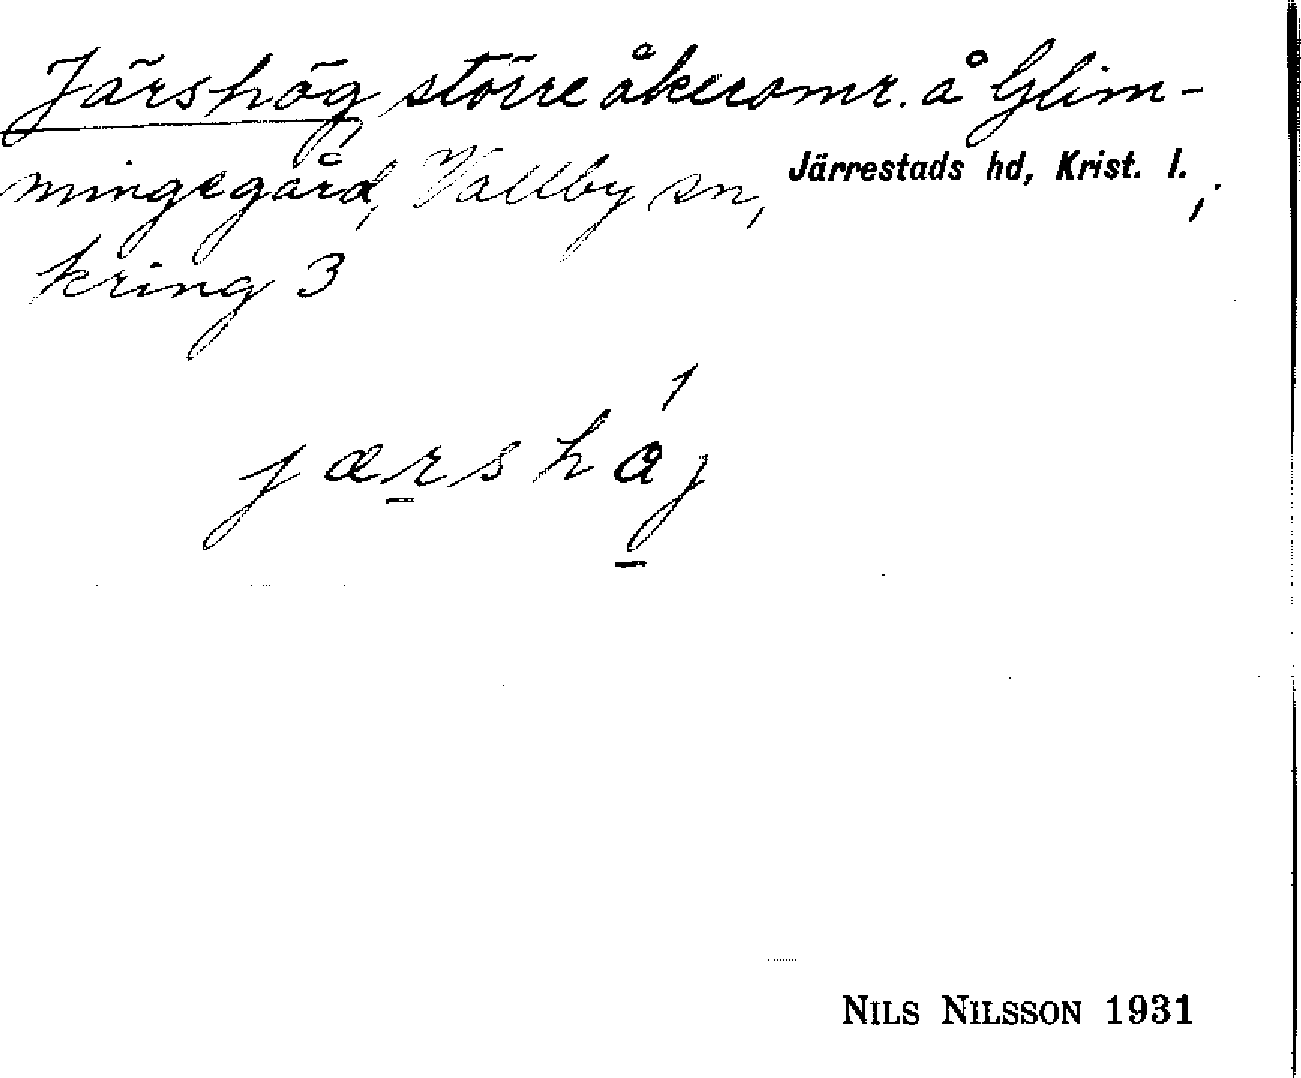 Järshög större åkeromr. å Glim-
mingegård, Vallby sn, Järrestads hd, Krist. l. ;
kring 3
jærshåj
NILS NILSSON 1931